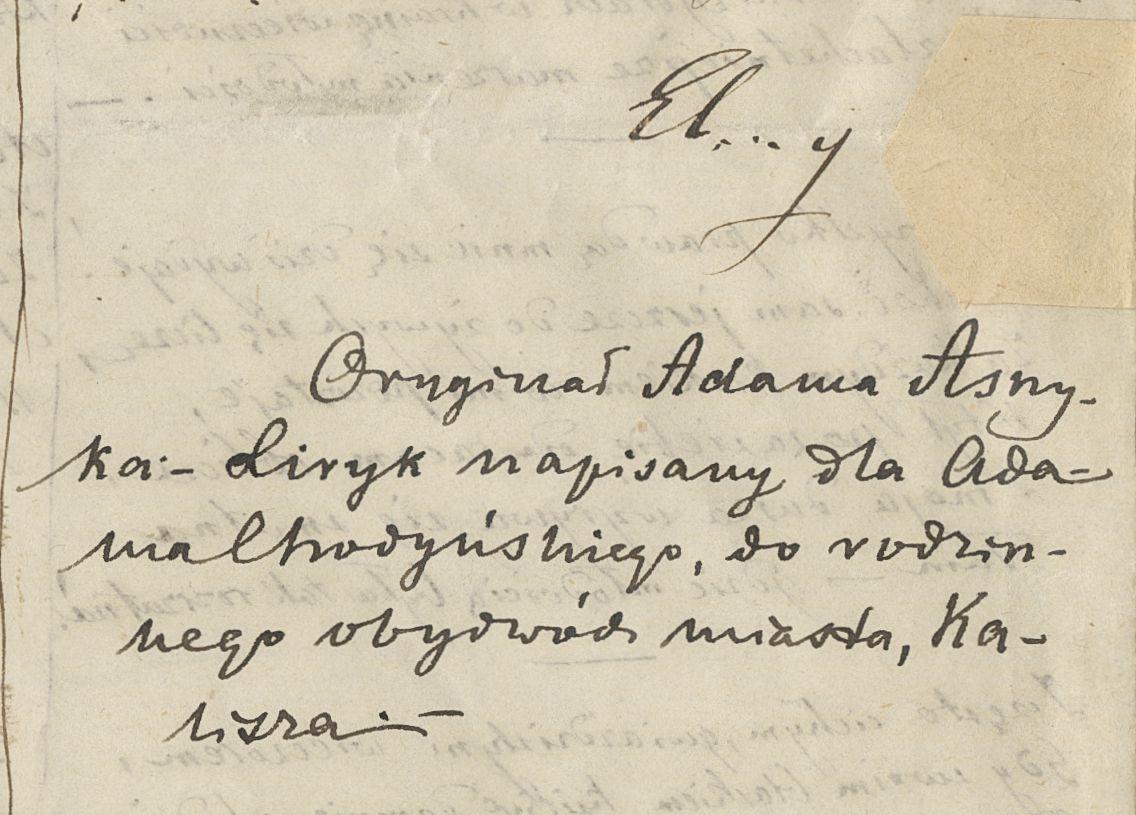 El...y
Oryginał Adama Asny-
ka - Liryk napisany dla Ada-
ma Chodyńskiego, do rodzin-
nego obydwóch miasta, Ka-
lisza. -